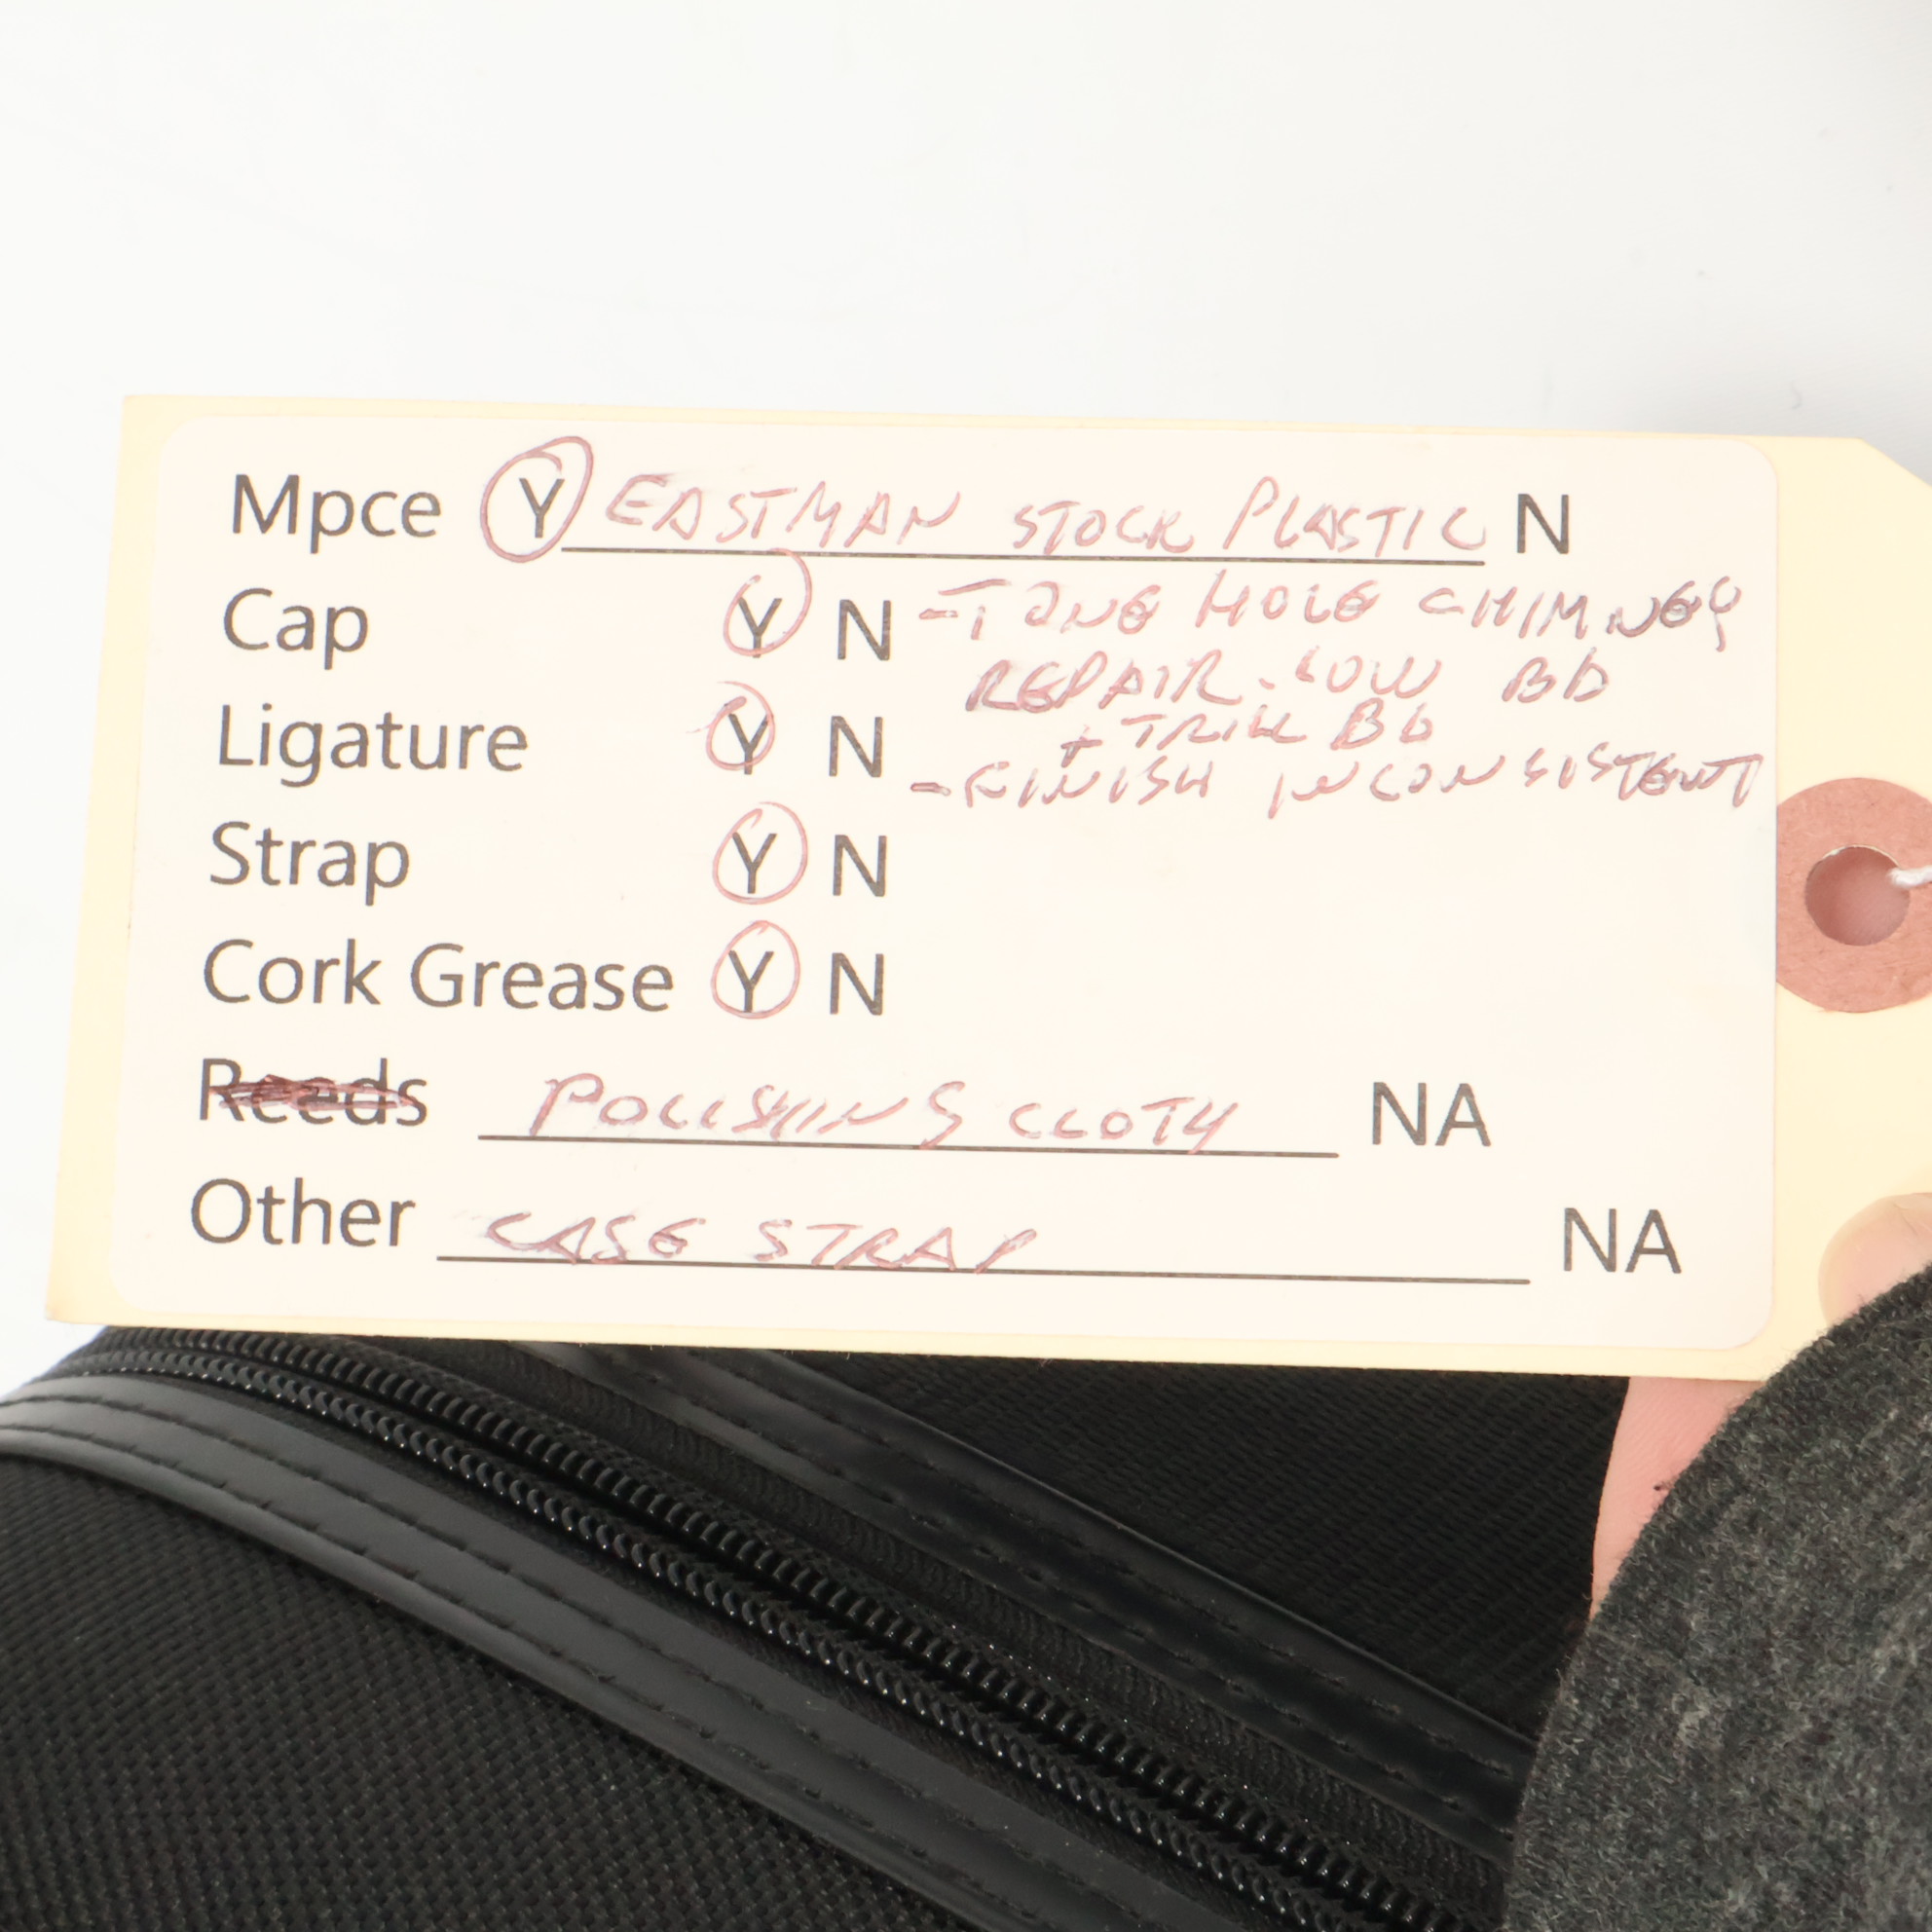 Mpce Y EASTMAN STOCK PLASTIC N
Cap Y N - TONE HOLE CHIMNEY
REPAIR - LOW Bb
+ TRILL Bb
Ligature Y N
- FINISH INCONSISTENT
Strap Y N
Cork Grease Y N
Reeds POLISHING CLOTH NA
Other CASE STRAP NA